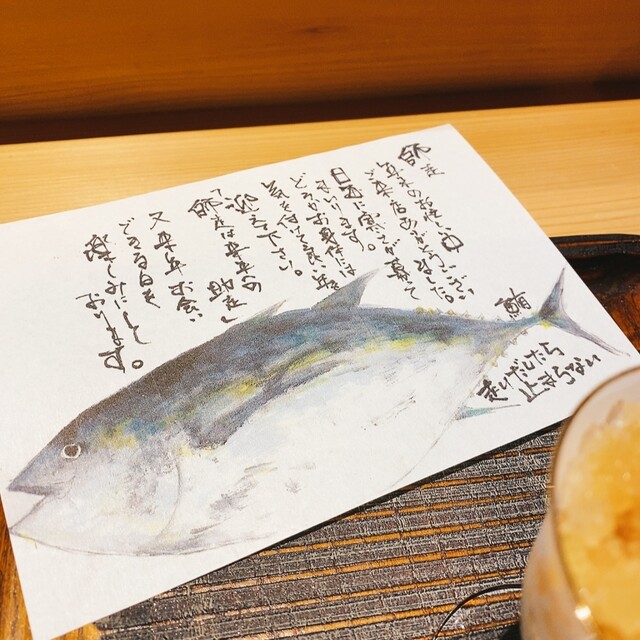 師走
年末のお忙しい中
ご来店ありがとうございました。
日ごとに寒さが募って
まいります。
どうかお身体には
気を付けて良い年を
迎え下さい。
「師走は来年の助走」
又来年お会い
できる日を
楽しみにして
おります。
鮪
走りだしたら
止まらない